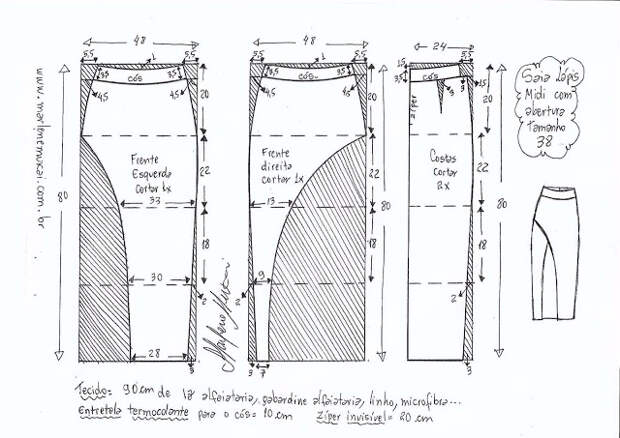 48
5,5
5,5
1
3,5
cós
3,5
4,5
4,5
20
Frente
Esquerda
Cortar 1x
22
33
80
18
30
2
28
3
www.marlenemukai.com.br
48
5,5
5,5
1
3,5
cós
3,5
4,5
4,5
20
Frente
direita
cortar 1x
22
13
80
18
9
2
7
3
Marlene Mukai
24
5,5
1,5
3,5
cós
3
9
1,5
20
zíper
Costas
cortar
2x
22
80
18
2
3
Saia Lápis
Midi com
abertura
Tamanho
38
Tecido= 90cm de lã alfaiataria, gabardine alfaiataria, linho, microfibra...
Entretela termocolante para o cós= 10cm Zíper invisível= 20cm